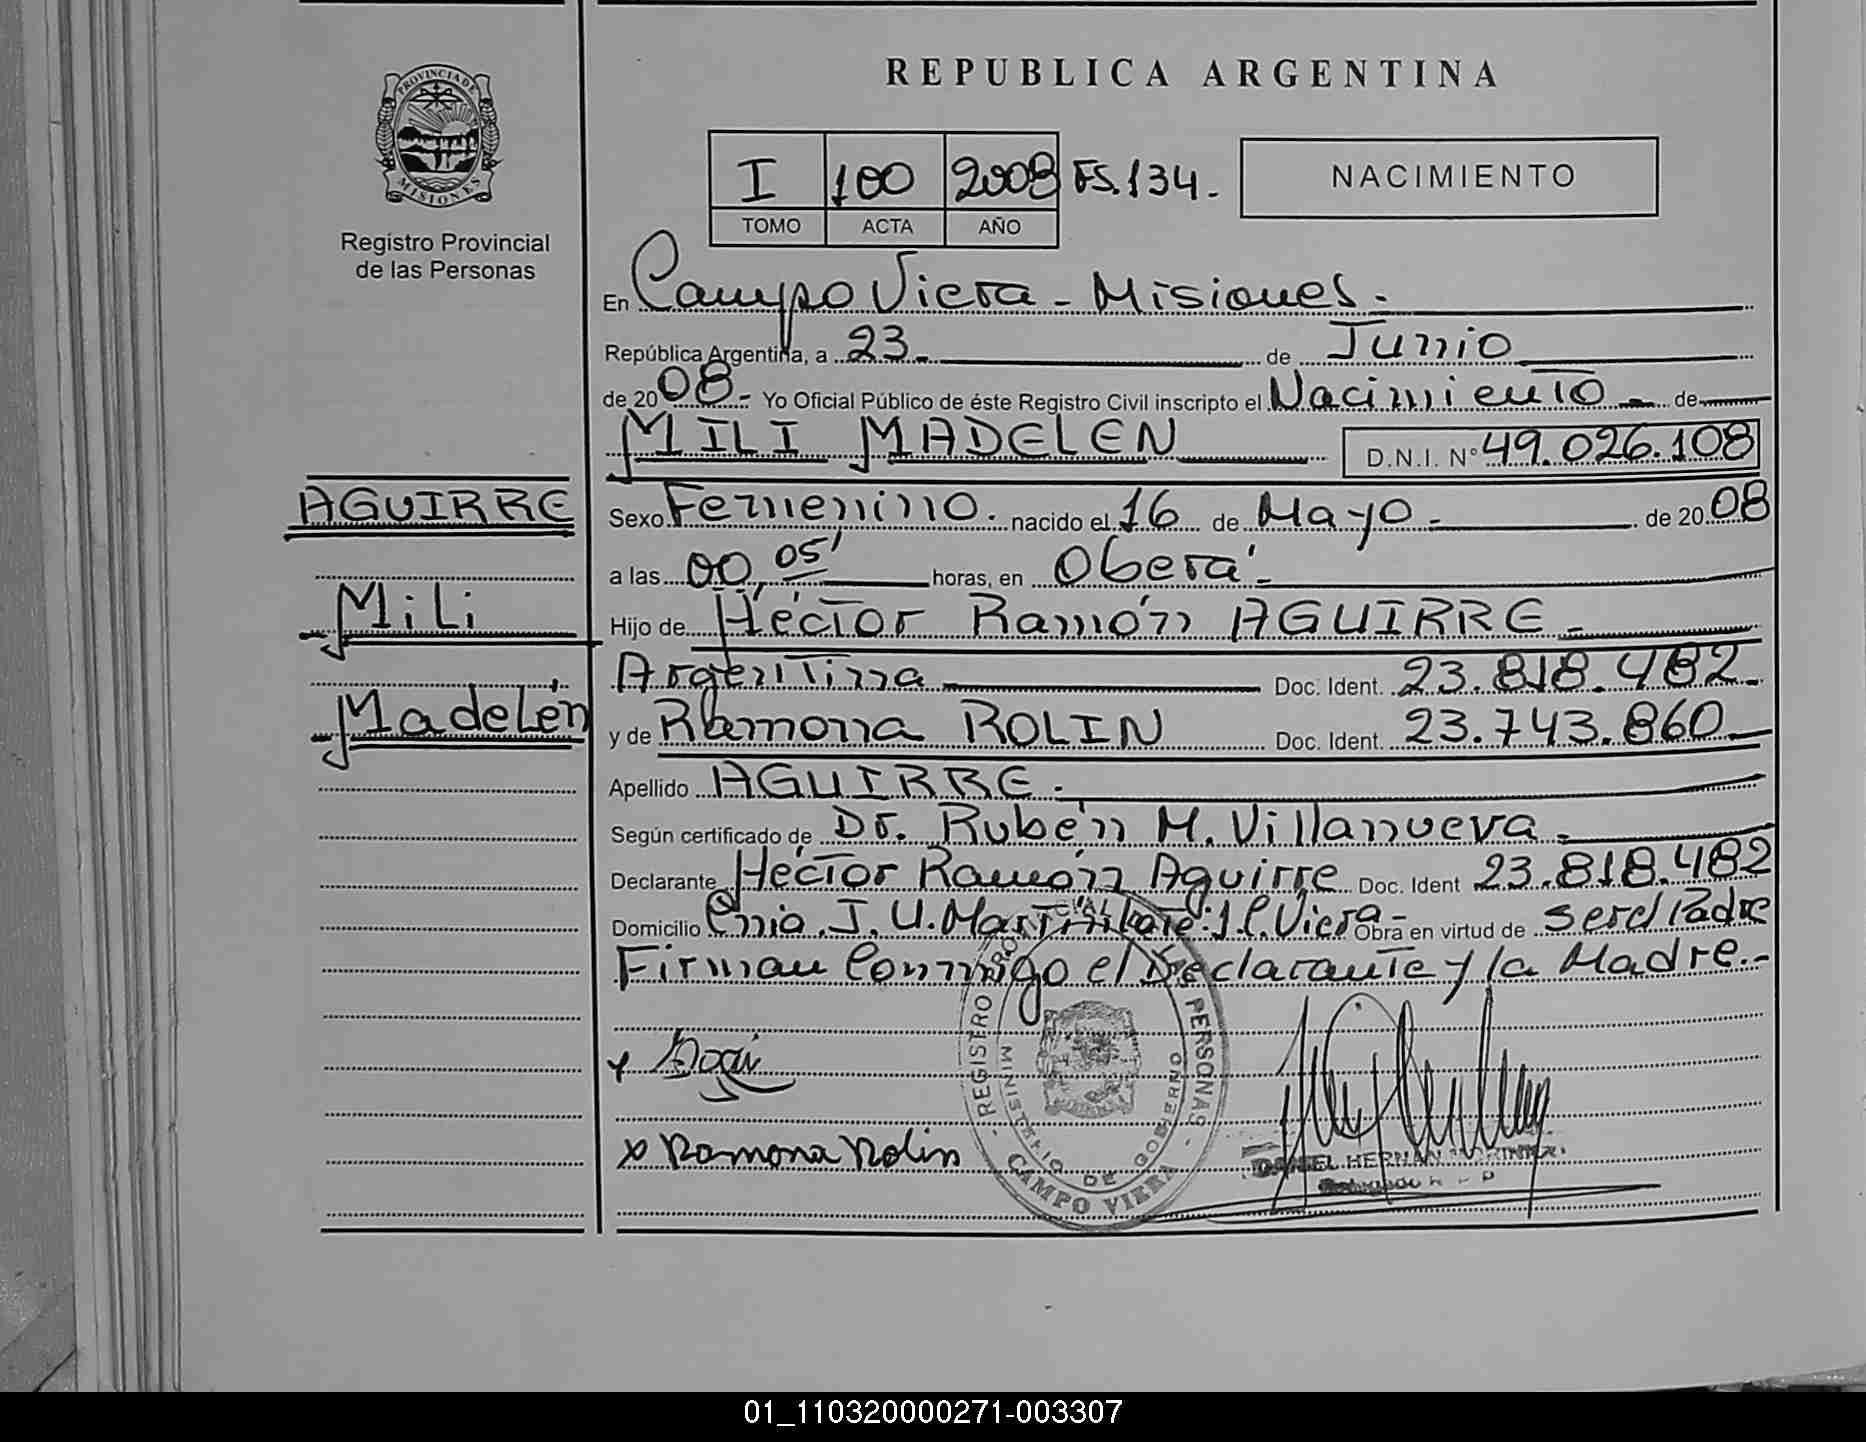 REPUBLICA ARGENTINA
PROVINCIA DE MISIONES
Registro Provincial
de las Personas
I 100 2008 FS.134.
TOMO ACTA AÑO
NACIMIENTO
En Campo Viera - Misiones.
República Argentina, a 23 de Junio
de 2008.- Yo Oficial Público de éste Registro Civil inscripto el Nacimiento de
MILI MADELEN D.N.I. N° 49.026.108
AGUIRRE
Mili
Madelén
Sexo Femenino. nacido el 16 de Mayo - de 2008
a las 00,05' horas, en Oberá -
Hijo de Héctor Ramón AGUIRRE -
Argentina Doc. Ident. 23.818.482-
y de Ramona ROLIN Doc. Ident. 23.743.860
Apellido AGUIRRE.
Según certificado de Dr. Rubén M. Villanueva -
Declarante Héctor Ramón Aguirre Doc. Ident 23.818.482
Domicilio J. U. Martín Viera - Obra en virtud de ser el Padre
Firman Conmigo el Declarante y la Madre.-
x Ramona Rolin
REGISTRO PERSONAS
MINISTERIO DE GOBIERNO
CAMPO VIERA
DANIEL HERNAN
01_110320000271-003307